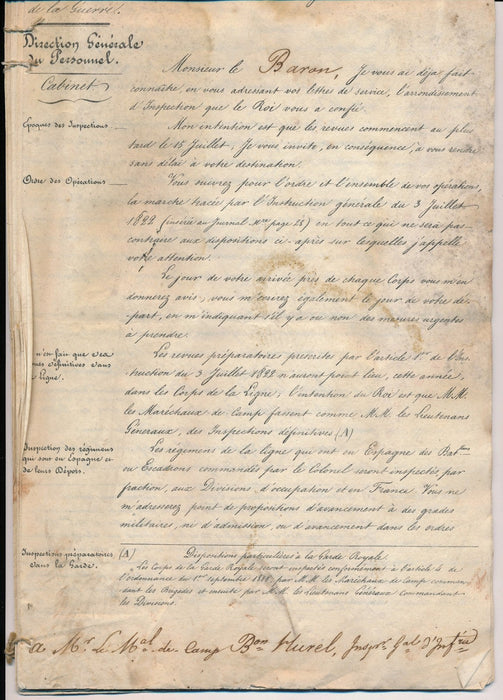 de la Guerre.
Direction Générale
du Personnel.
Cabinet
Monsieur le Baron, Je vous ai déjà fait
connaître, en vous adressant vos lettres de service, l'arrondissement
d'Inspection que le Roi vous a confié.
Epoques des Inspections.
Mon intention est que les revues commencent au plus
tard le 15 Juillet; Je vous invite, en conséquence, à vous rendre
sans délai à votre destination.
Ordre des Opérations
Vous suivrez pour l'ordre et l'ensemble de vos opérations,
la marche tracée par l'Instruction générale du 3 Juillet
1822 (insérée au Journal Mre page 25) en tout ce qui ne sera pas
contraire aux dispositions ci-après sur lesquelles j'appelle
votre attention.
Le jour de votre arrivée près de chaque Corps vous m'en
donnerez avis; vous m'écrirez également le jour de votre dé-
part, en m'indiquant s'il y a ou non des mesures urgentes
à prendre.
n'en fait que des
revues définitives dans
la Ligne.
Les revues préparatoires prescrites par l'article 1er de l'Ins-
truction du 3 Juillet 1822 n'auront point lieu, cette année,
dans les Corps de la Ligne; l'intention du Roi est que M.M.
les Maréchaux de Camp fassent comme M.M. les Lieutenans
Généraux, des Inspections définitives (A)
Inspection des régimens
qui sont en Espagne et
de leurs Dépôts.
Les régimens de la ligne qui ont en Espagne des Batons
ou Escadrons commandés par le Colonel seront inspectés, par
fraction, aux Divisions d'occupation et en France. Vous ne
m'adresserez point de propositions d'avancement à des grades
militaires, ni d'admission, ou d'avancement dans les ordres
Inspections préparatoires
dans la Garde.
(A) Dispositions particulières à la Garde Royale.
Les Corps de la Garde Royale seront inspectés conformément à l'article 4 de
l'ordonnance du 1er Septembre par M.M. les Maréchaux de Camp comman-
dant les Brigades et ensuite par M.M. les Lieutenans Généraux Commandant
les Divisions.
a Mr. le Mal. de Camp Bon. Hurel, Inspr. Gal. d'Infrie